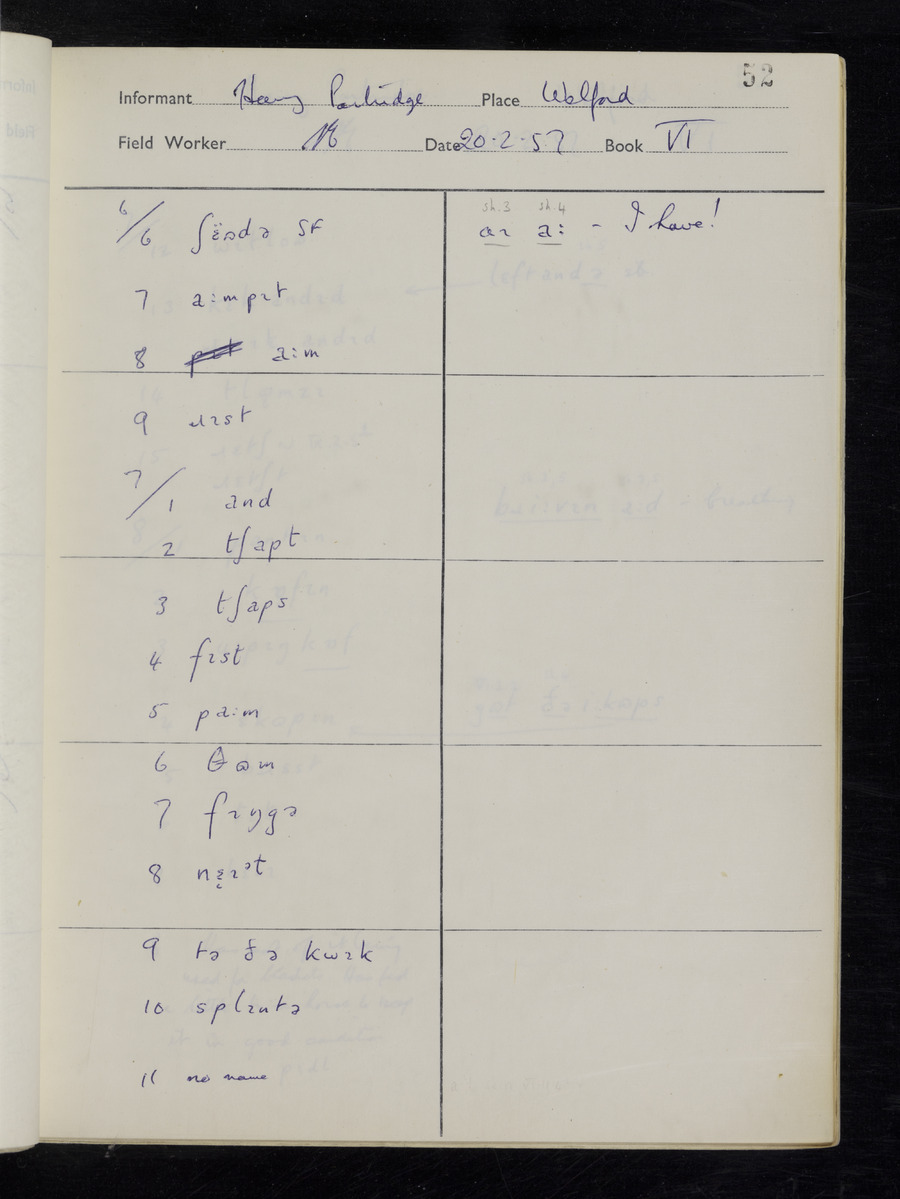 52
Informant Henry Partridge Place Welford
Field Worker Date 20.2.57 Book VI
6/6 ʃɛ̈ədə SF
7 a:mpɪt
8 a:m
9 ɹɪst
7/1 and
2 tʃapt
3 tʃaps
4 fɪst
5 pa:m
6 θəm
7 fɪŋgə
8
9 tə ðə kwɪk
10 splɪntə
11 no name
sh.3 sh.4
aɪ a: - I have!